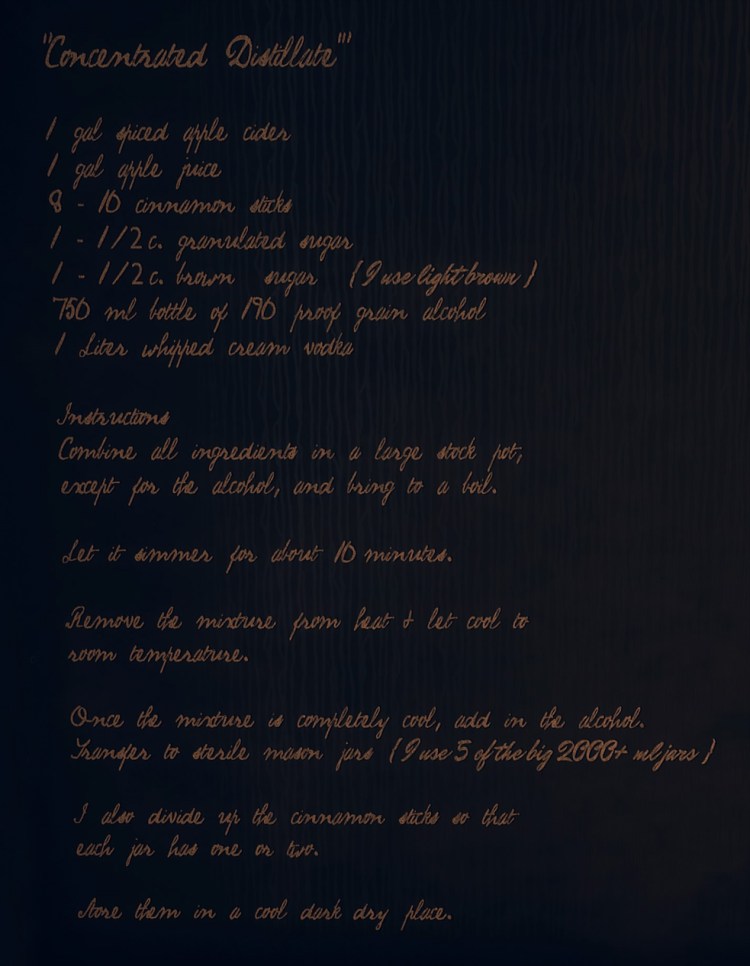 "Concentrated Distillate"'
1 gal spiced apple cider
1 gal apple juice
8 - 10 cinnamon sticks
1 - 1/2 c. granulated sugar
1 - 1/2 c. brown sugar (I use light brown)
750 ml bottle of 190 proof grain alcohol
1 Liter whipped cream vodka
Instructions
Combine all ingredients in a large stock pot,
except for the alcohol, and bring to a boil.
Let it simmer for about 10 minutes.
Remove the mixture from heat & let cool to
room temperature.
Once the mixture is completely cool, add in the alcohol.
Transfer to sterile mason jars (I use 5 of the big 2000+ ml jars)
I also divide up the cinnamon sticks so that
each jar has one or two.
Store them in a cool dark dry place.